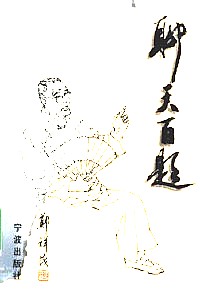 聊天百题
郭祥茂
宁波出版社